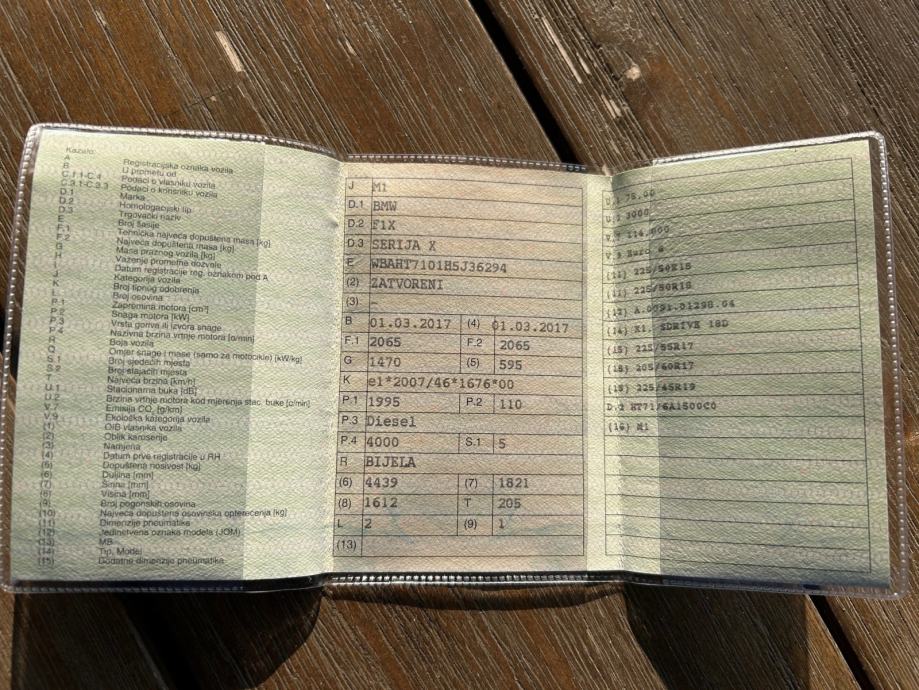 Kazalo:
A Registracijska oznaka vozila
B U prometu od
C.1.1-C.4 Podaci o vlasniku vozila
C.3.1-C.3.3 Podaci o korisniku vozila
D.1 Marka
D.2 Homologacijski tip
D.3 Trgovački naziv
E Broj šasije
F.1 Tehnička najveća dopuštena masa [kg]
F.2 Najveća dopuštena masa [kg]
G Masa praznog vozila [kg]
H Važenje prometne dozvole
I Datum registracije reg. oznakom pod A
J Kategorija vozila
K Broj tipnog odobrenja
L Broj osovina
P.1 Zapremina motora [cm³]
P.2 Snaga motora [kW]
P.3 Vrsta goriva ili izvora snage
P.4 Nazivna brzina vrtnje motora [o/min]
R Boja vozila
Q Omjer snage i mase (samo za motocikle) [kW/kg]
S.1 Broj sjedećih mjesta
S.2 Broj stajaćih mjesta
T Najveća brzina [km/h]
U.1 Stacionarna buka [dB]
U.2 Brzina vrtnje motora kod mjerenja stac. buke [o/min]
V.7 Emisija CO₂ [g/km]
V.9 Ekološka kategorija vozila
(1) OIB vlasnika vozila
(2) Oblik karoserije
(3) Namjena
(4) Datum prve registracije u RH
(5) Dopuštena nosivost [kg]
(6) Duljina [mm]
(7) Širina [mm]
(8) Visina [mm]
(9) Broj pogonskih osovina
(10) Najveća dopuštena osovinska opterećenja [kg]
(11) Dimenzije pneumatika
(12) Jedinstvena oznaka modela (JOM)
(13) MB
(14) Tip, Model
(15) Dodatne dimenzije pneumatika
J M1
D.1 BMW
D.2 F1X
D.3 SERIJA X
E WBAHT7101H5J36294
(2) ZATVORENI
(3) -
B 01.03.2017 (4) 01.03.2017
F.1 2065 F.2 2065
G 1470 (5) 595
K e1*2007/46*1676*00
P.1 1995 P.2 110
P.3 Diesel
P.4 4000 S.1 5
R BIJELA
(6) 4439 (7) 1821
(8) 1612 T 205
L 2 (9) 1
(13)
U.1 75.00
U.2 3000
V.7 114.000
V.9 Euro 6
(11) 225/50R18
(11) 225/50R18
(12) A.0091.01298.04
(14) X1, SDRIVE 18D
(15) 225/55R17
(15) 205/60R17
(15) 225/45R19
D.2 HT71/6A1500C0
(16) M1